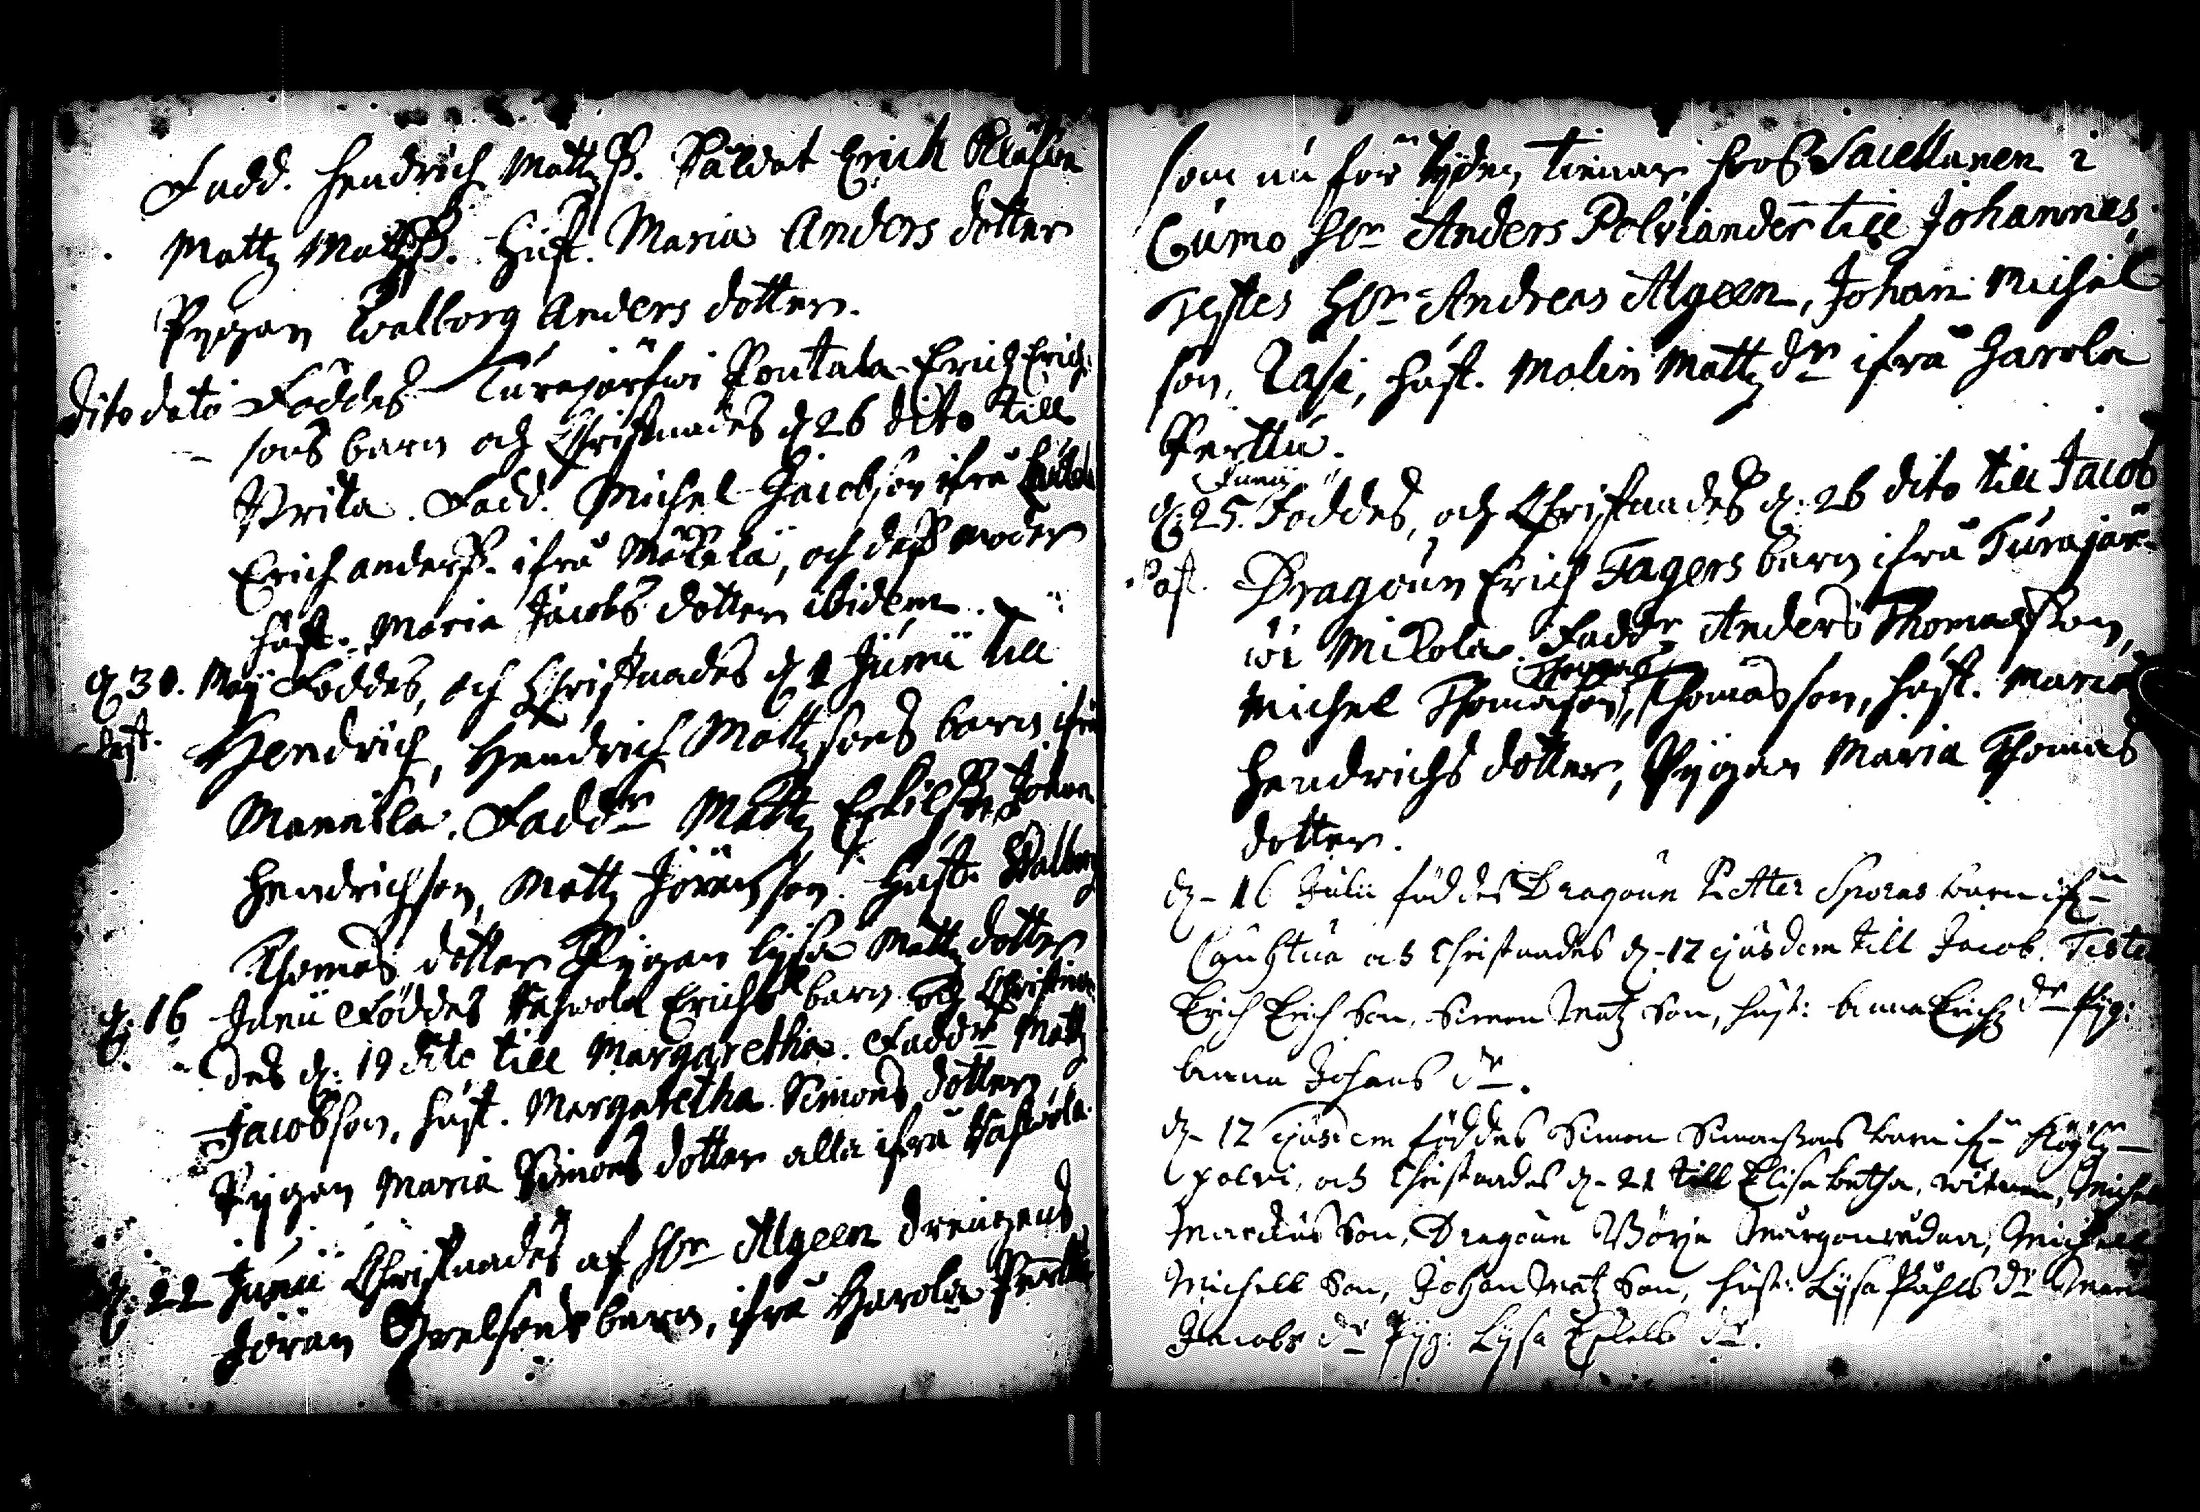 Fadd. Hendrich Mattz ß. Såldat Erich
Mattz Mattz ß. Hust. Maria Anders dotter
Pygan Walborg Anders dotter.
dito dato Föddes Turajärfwi Pontala Erich Erich
sons barn och Christnades d 26 dito till
Brita. Fadd. Michel Jacobson ifrå
Erich anderß. ifrå Mäkelä, och deß moder
hust. Maria Jacobs dotter ibidem.
d 30. Maij Föddes, och Christnades d 1 Junii till
Hendrich, Hendrich Mattz sons barn ifrå
Mannila. Fadd:r Mattz Johan
Hendrichson, Mattz Jöranson. Hust. Walborg
Thomas dotter Pygan Lysa Mattz dotter
d. 16 Junii Föddes Erichs barn och Christna
des d. 19 dito till Margaretha. Fadd:r Mattz
Jacobson, hust. Margaretha Simons dotter,
Pygan Maria Simons dotter alla ifrå
d. 22 Junii Christnades af H:r Algeen drengens
Jöran barn, ifrå Harola Perttu
som nu för tyden tienar hos Sacellanen i
Cumo H:r Anders Polviander till Johannes,
Testes H:r Andreas Algeen, Johan Michel
son, Lasi, hust. Malin Mattz d:r ifrå Harola
Perttu.
Junij
d. 25. Föddes, och Christnades d. 26 dito till Jacob
Dragoun Erich Fagers barn ifrå Turajär-
wi Mikola. Fadd:r Anders Thomasson,
Michel Thomason, Thomasson, hust. Maria
Hendrichs dotter, Pygan Maria Thomas
dotter.
d - 16 Julii föddes Dragoun Petter Sporas barn if:n
Cauhtua och Christnades d - 17 ejusdem till Jacob. Teste
Erich Erich Son, Simon Matz Son, hust: Anna Erichz d:r Pyg:
Anna Johans d:r.
d - 17 ejusdem föddes Simon Simonssons barn if:n Köyly-
polvi, och Christnades d - 21 till Elisabetha, witnen, Michel
Marckus Son, Dragoun Börje Michell
Michell Son, Johan Matz Son, hust: Lysa Påhls d:r Maria
Jacobs d:r Pyg: Lysa d:r.